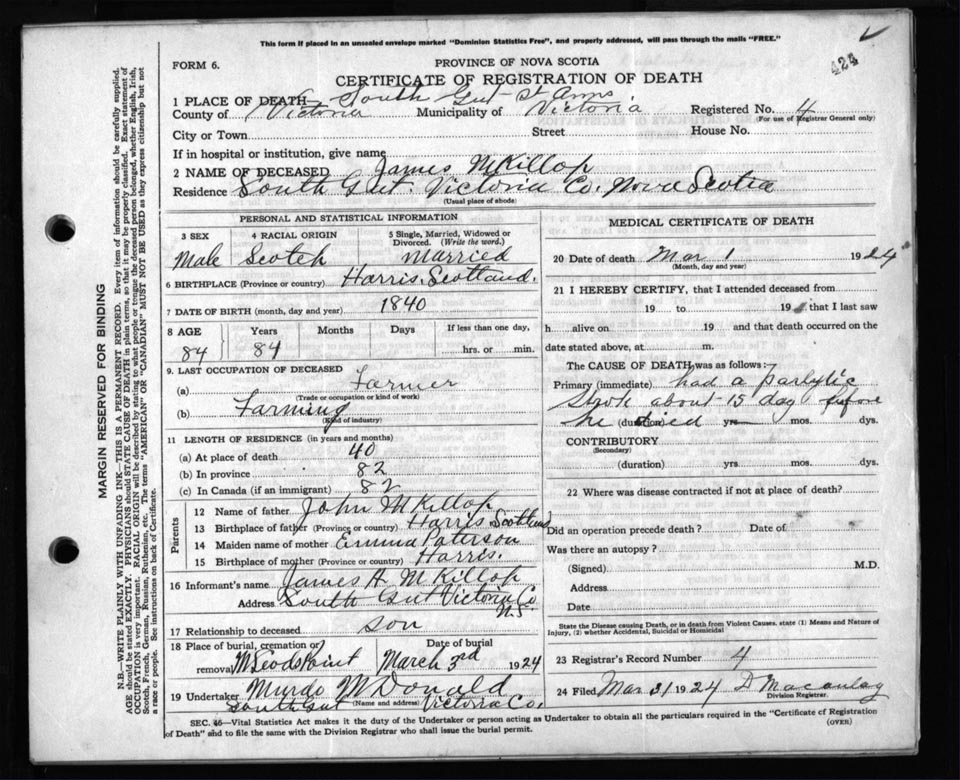 This form if placed in an unsealed envelope marked "Dominion Statistics Free", and properly addressed, will pass through the mails "FREE."
424
FORM 6.
PROVINCE OF NOVA SCOTIA
CERTIFICATE OF REGISTRATION OF DEATH
1 PLACE OF DEATH South Gut St Anns
County of Victoria Municipality of Victoria Registered No. 4
(For use of Registrar General only)
City or Town Street House No.
If in hospital or institution, give name
2 NAME OF DECEASED James McKillop
Residence South Gut Victoria Co. Nova Scotia
(Usual place of abode)
PERSONAL AND STATISTICAL INFORMATION
3 SEX 4 RACIAL ORIGIN 5 Single, Married, Widowed or Divorced. (Write the word.)
Male Scotch Married
6 BIRTHPLACE (Province or country) Harris, Scotland.
7 DATE OF BIRTH (month, day and year) 1840
8 AGE Years Months Days If less than one day,
84 84 hrs. or min.
9. LAST OCCUPATION OF DECEASED
(a) Farmer
(Trade or occupation or kind of work)
(b) Farming
(Kind of industry)
11 LENGTH OF RESIDENCE (in years and months)
(a) At place of death 40
(b) In province 82
(c) In Canada (if an immigrant) 82
Parents
12 Name of father John McKillop
13 Birthplace of father (Province or country) Harris Scotland
14 Maiden name of mother Emma Paterson
15 Birthplace of mother (Province or country) Harris.
16 Informant's name James H McKillop
Address South Gut Victoria Co
N.S
17 Relationship to deceased son
18 Place of burial, cremation or removal McLeods Point Date of burial March 3rd 1924
19 Undertaker Murdo McDonald
(Name and address) South Gut Victoria Co.
MEDICAL CERTIFICATE OF DEATH
20 Date of death Mar 1 1924
(Month, day and year)
21 I HEREBY CERTIFY, that I attended deceased from
19 to 19 that I last saw
h alive on 19 and that death occurred on the
date stated above, at m.
The CAUSE OF DEATH was as follows:
Primary (immediate) had a parlytic
Strok about 15 day before
he died (duration) yrs mos. dys.
CONTRIBUTORY
(Secondary)
(duration) yrs. mos. dys.
22 Where was disease contracted if not at place of death?
Did an operation precede death? Date of
Was there an autopsy?
(Signed) M.D.
Address
Date
State the Disease causing Death, or in death from Violent Causes, state (1) Means and Nature of
Injury, (2) whether Accidental, Suicidal or Homicidal
23 Registrar's Record Number 4
24 Filed Mar 31 1924 D Macaulay
Division Registrar.
SEC. 46—Vital Statistics Act makes it the duty of the Undertaker or person acting as Undertaker to obtain all the particulars required in the "Certificate of Registration
of Death" and to file the same with the Division Registrar who shall issue the burial permit.
(OVER)
MARGIN RESERVED FOR BINDING
N.B.—WRITE PLAINLY WITH UNFADING INK—THIS IS A PERMANENT RECORD. Every item of information should be carefully supplied.
AGE should be stated EXACTLY. PHYSICIANS should STATE CAUSE OF DEATH in plain terms, so that it may be properly classified. Exact statement of
OCCUPATION is very important. RACIAL ORIGIN will be described by stating to what people or tongue the deceased person belonged, whether English, Irish,
Scotch, French, German, Russian, Ruthenian, etc. The terms "AMERICAN" OR "CANADIAN" MUST NOT BE USED as they express citizenship but not
a race or people. See instructions on back of Certificate.